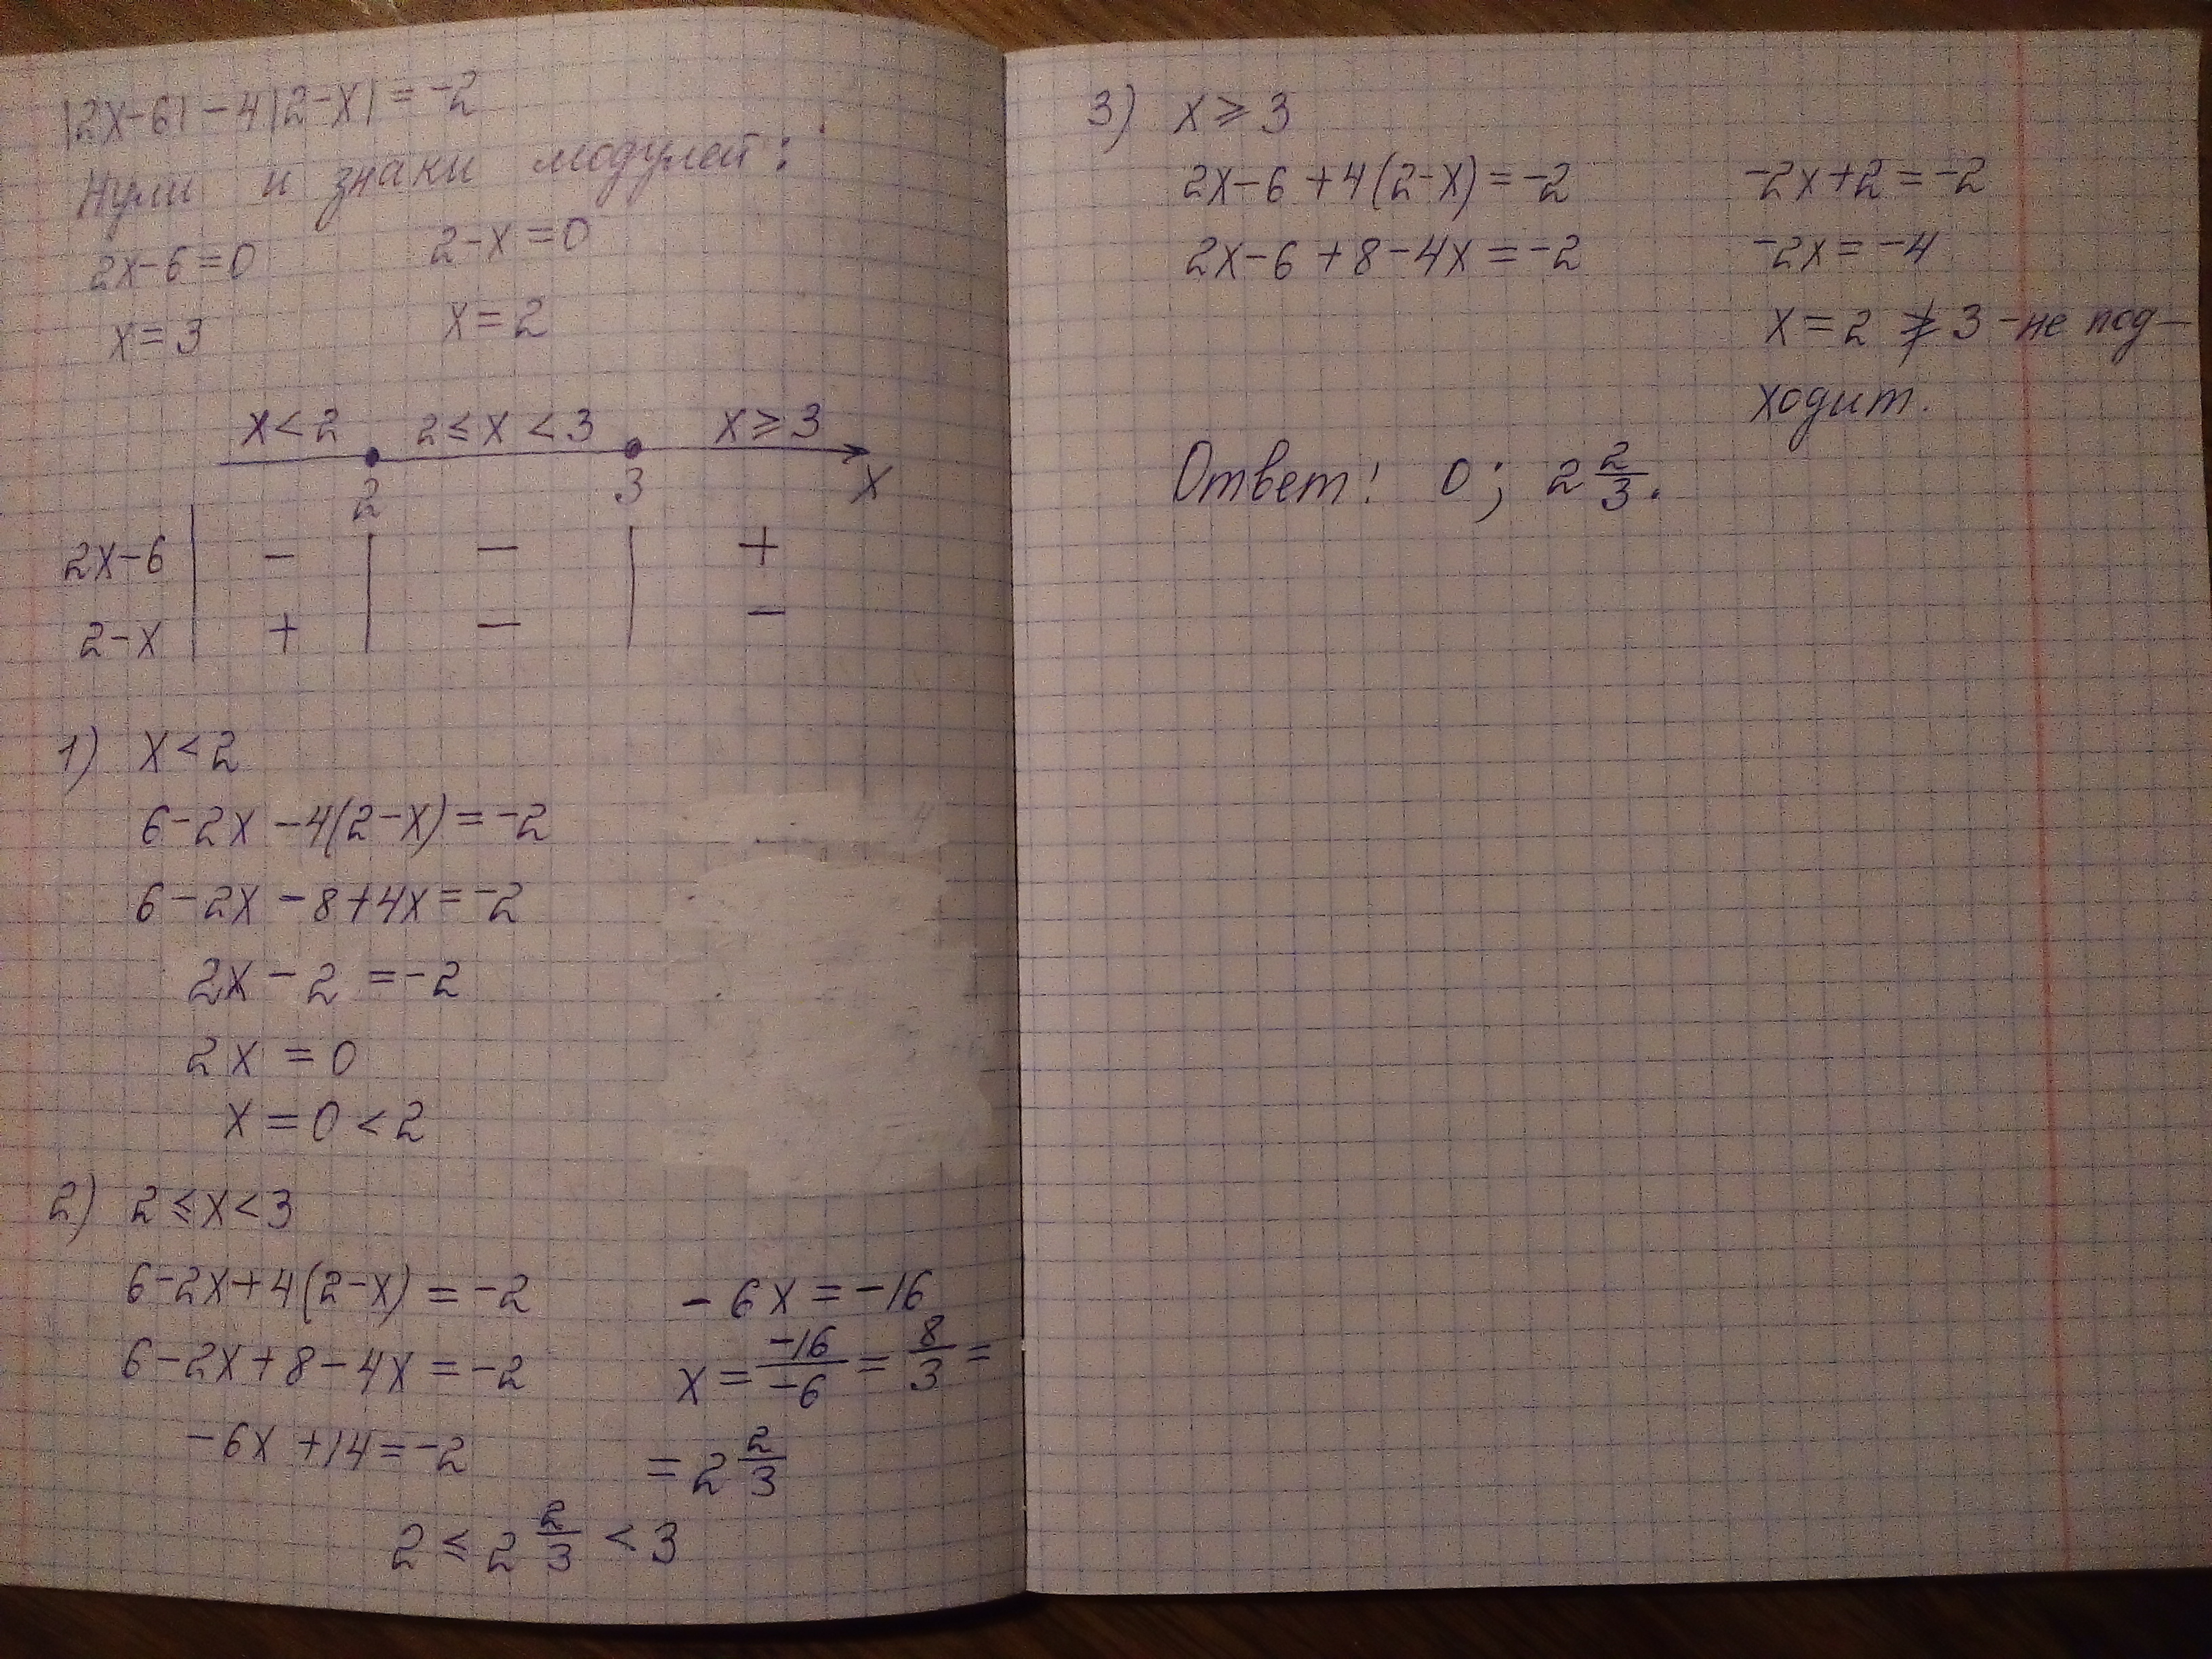 |2x-6|-4|2-x|=-2
Нули и знаки модулей:
2x-6=0 2-x=0
x=3 x=2
x<2 2≤x<3 x≥3
2 3 x
2x-6 - - +
2-x + - -
1) x<2
6-2x-4(2-x)=-2
6-2x-8+4x=-2
2x-2=-2
2x=0
x=0<2
2) 2≤x<3
6-2x+4(2-x)=-2
6-2x+8-4x=-2
-6x+14=-2
-6x=-16
x=-16/-6=8/3=
=2 2/3
2≤2 2/3<3
3) x≥3
2x-6+4(2-x)=-2
2x-6+8-4x=-2
-2x+2=-2
-2x=-4
x=2≱3-не под-
ходит.
Ответ: 0; 2 2/3.